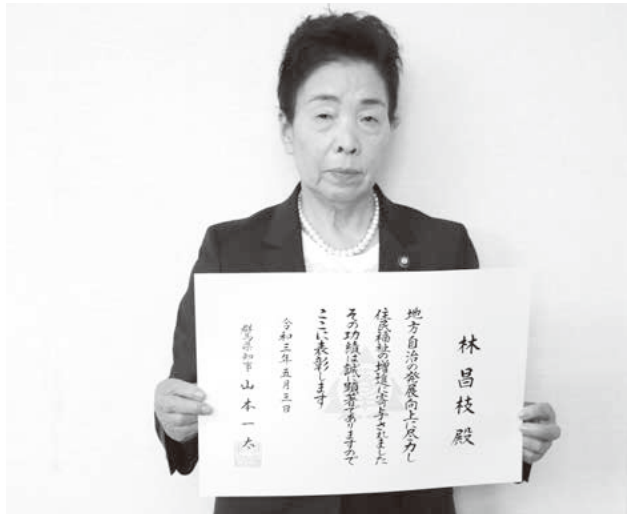 林昌枝殿
地方自治の発展向上に尽力し
住民福祉の増進に寄与されました
その功績は誠に顕著でありますので
ここに表彰します
令和三年五月三日
群馬県知事 山本一太